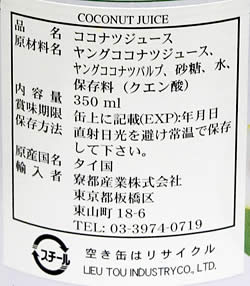 COCONUT JUICE
品名 ココナツジュース
原材料名 ヤングココナツジュース、
ヤングココナツパルプ、砂糖、水、
保存料（クエン酸）
内容量 350 ml
賞味期限 缶上に記載(EXP):年月日
保存方法 直射日光を避け常温で保存
して下さい。
原産国名 タイ国
輸入者 寮都産業株式会社
東京都板橋区
東山町 18-6
TEL: 03-3974-0719
スチール
空き缶はリサイクル
LIEU TOU INDUSTRYCO., LTD.